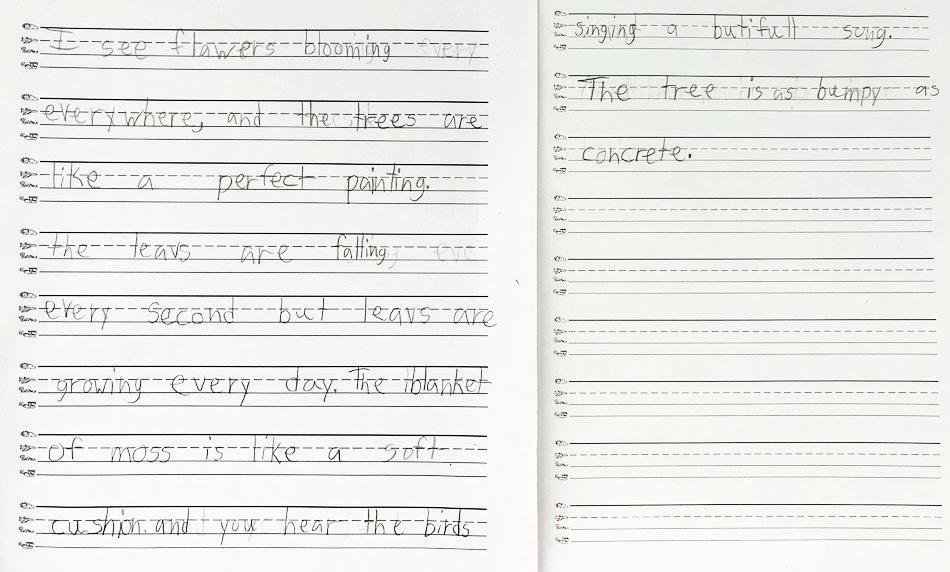 I see flawers blooming every
everywhere, and the trees are
like a perfect painting.
the leavs are falling eve
every second but leavs are
growing every day. The blanket
of moss is like a soft
cushion. and you hear the birds
singing a butifull song.
The tree is as bumpy as
concrete.